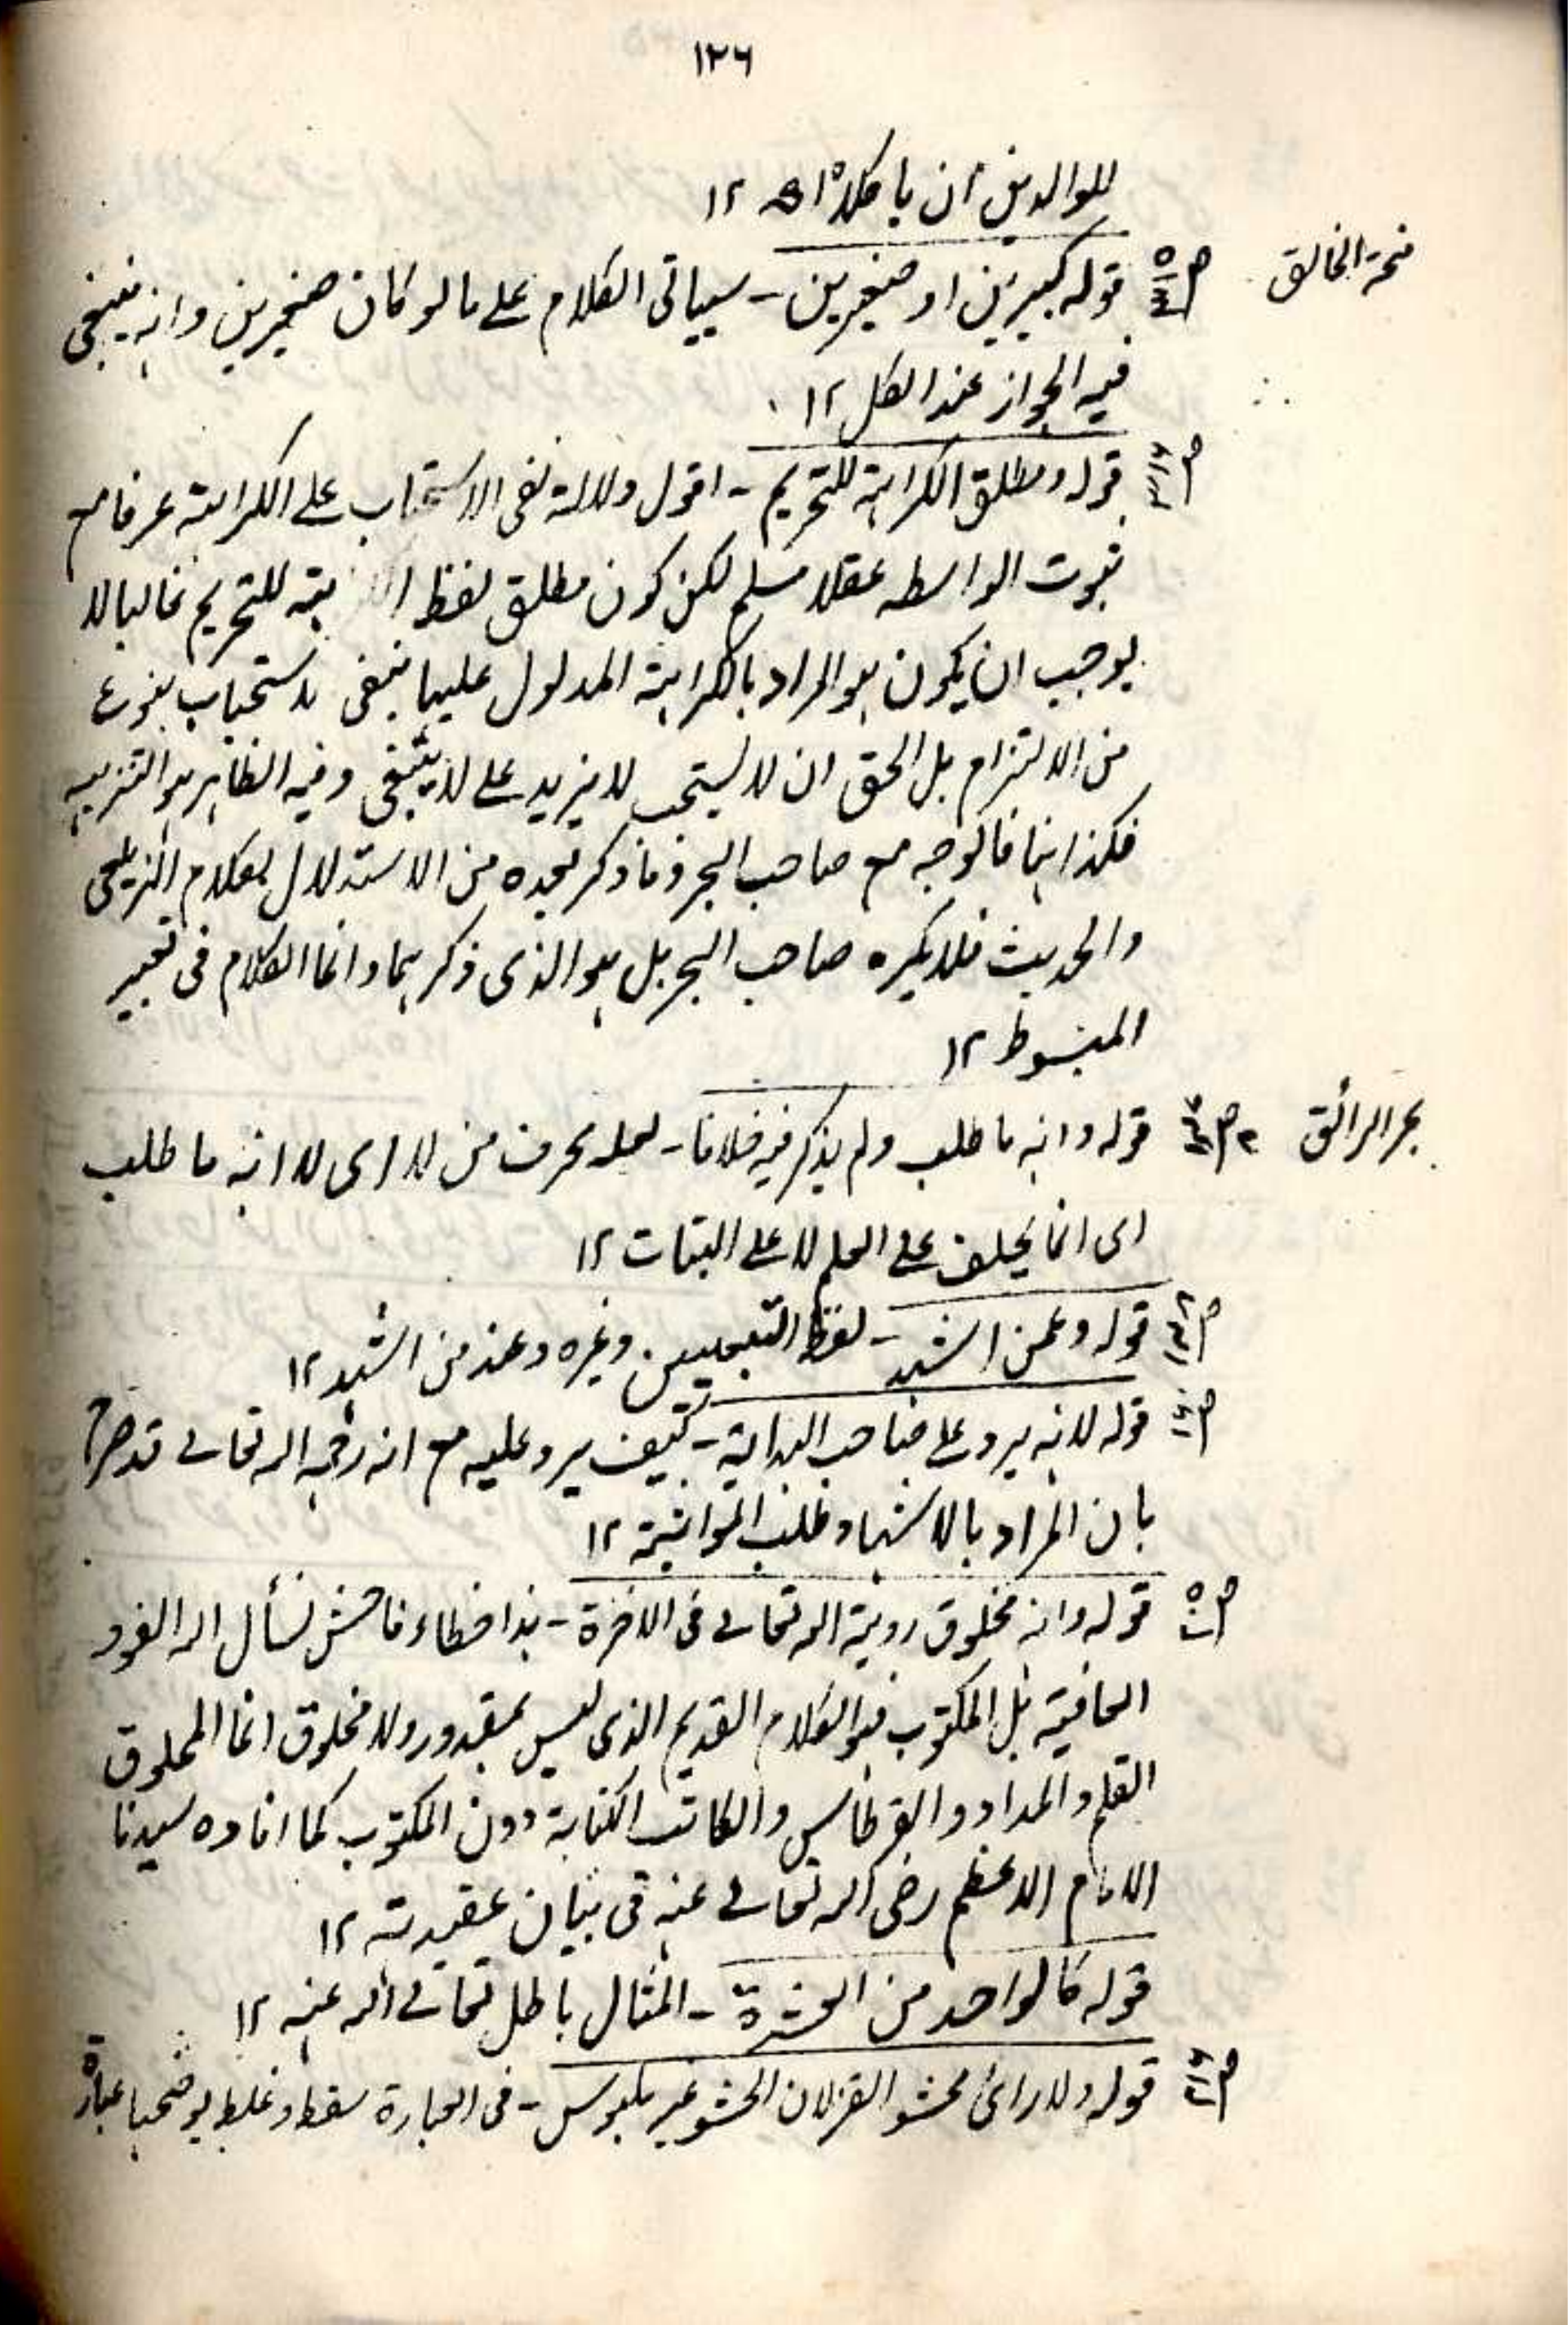 ١٢٦
للوالدين ان ياكلا اھ ١٢
منحة الخالق
قوله كبيرين او صغيرين - سياتى الكلام على ما لو كان صغيرين وانه ينبغى
فيه الجواز عند الكل ١٢
قوله ومطلق الكراهة للتحريم - اقول دلالة نفى الاستحباب على الكراهة عرفا مع
ثبوت الواسطه عقلا مسلم لكن كون مطلق لفظ ال هة للتحريم غالبا لا
يوجب ان يكون هو المراد بالكراهة المدلول عليها بنفى الاستحباب بنوع
من الالتزام بل الحق ان لا يستحب لا يزيد على لا ينبغى وفيه الظاهر هو التنزيه
فكذا هنا فالوجه مع صاحب البحر وما ذكر بعده من الاستدلال بكلام الزيلعى
والحديث فلا يكره صاحب البحر بل هو الذى ذكرهما وانما الكلام فى تعبير
المبسوط ١٢
بحر الرائق
قوله وانه ما طلب ولم يذكر فيه خلافا - لعله بحرف من لا ارى لا انه ما طلب
اى انما يحلف على العلم لا على البتات ١٢
قوله وعمن اشهد - لفظ التبيين وغيره وعند من اشهد ١٢
قوله لانه يرد على صاحب الهداية - كيف يرد عليه مع انه رحمه الله تعالى قد صرح
بان المراد بالاشهاد طلب المواثبة ١٢
قوله وانه مخلوق روية الله تعالى فى الاخرة - هذا خطاء فاحش نسأل الله العفو و
العافية بل المكتوب هو الكلام القديم الذى ليس بمقدور ولا مخلوق انما المخلوق
القلم والمداد والقرطاس والكاتب الكتابة دون المكتوب كما افاده سيدنا
الامام الاعظم رضى الله تعالى عنه فى بيان عقيدته ١٢
قوله كالواحد من العشرة - المثال باطل تعالى الله عنه ١٢
قوله ولا راى محشو القز لان الحشو غير ملبوس - فى العبارة سقط وغلط يوضحها عبارة